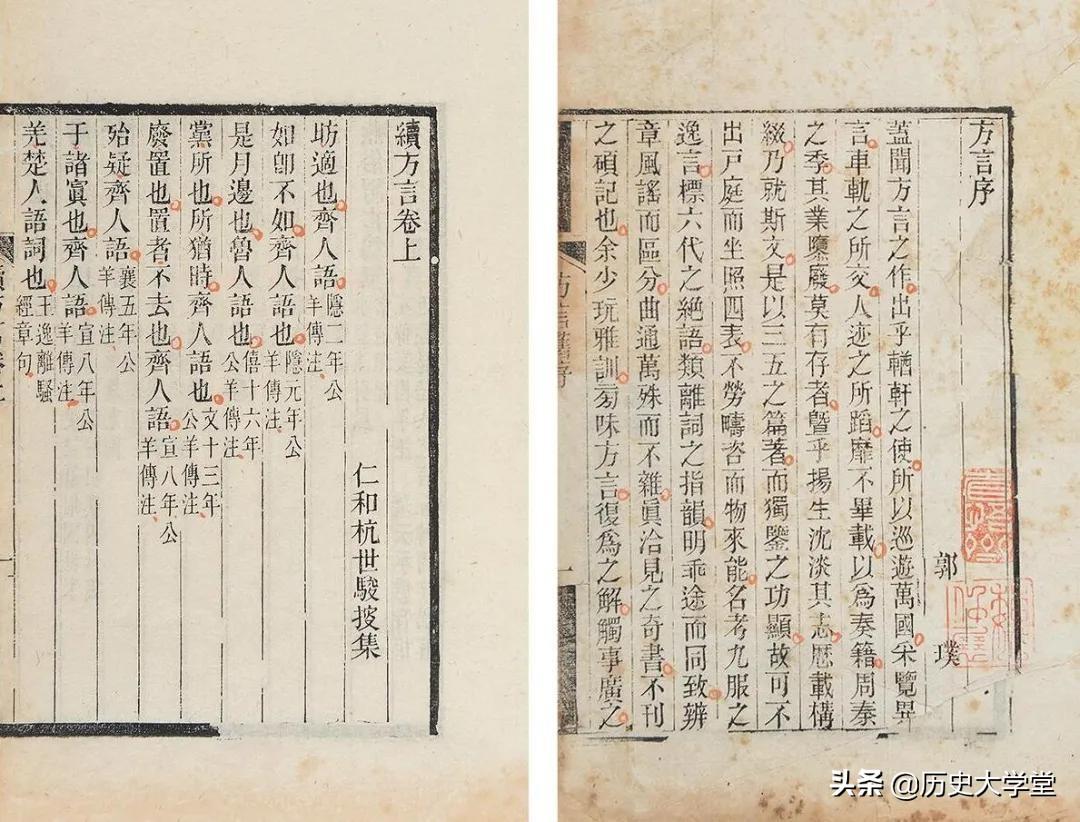 方言序
郭璞
蓋聞方言之作出乎輶軒之使所以巡遊萬國采覽異
言車軌之所交人迹之所蹈靡不畢載以爲奏籍周秦
之季其業隳廢莫有存者曁乎揚生沈淡其志歴載構
綴乃就斯文是以三五之篇著而獨鑒之功顯故可不
出戶庭而坐照四表不勞疇咨而物來能名考九服之
逸言標六代之絶語類離詞之指韻明乖途而同致辨
章風謠而區分曲通萬殊而不雜眞洽見之奇書不刊
之碩記也余少玩雅訓旁味方言復爲之解觸事廣之
續方言卷上
仁和杭世駿披集
昉適也齊人語隱二年公羊傳注
如卽不如齊人語也隱元年公羊傳注
是月邊也魯人語也僖十六年公羊傳注
黨所也所猶時齊人語也文十三年公羊傳注
廢置也置者不去也齊人語宣八年公羊傳注
殆疑齊人語襄五年公羊傳注
于諸寘也齊人語宣八年公羊傳注
羌楚人語詞也王逸離騷經章句
头条 @历史大学堂